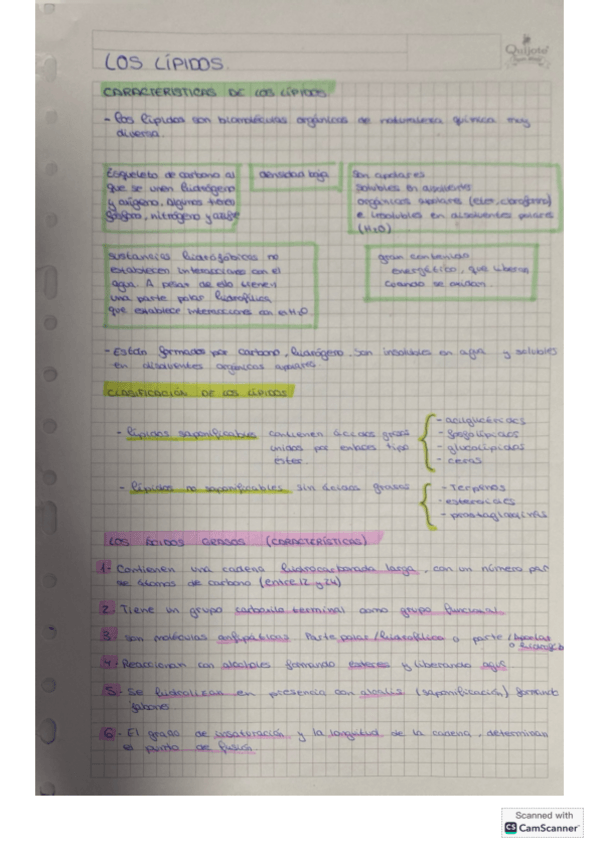 LOS LÍPIDOS.
Quijote
CARACTERISTICAS DE LOS LÍPIDOS
- Los lípidos son biomoléculas orgánicas de naturaleza química muy
diversa.
Esqueleto de carbono al
que se unen hidrógeno
y oxígeno, algunos tienen
fósforo, nitrógeno y azufre
densidad baja
son apolares
solubles en disolventes
orgánicos apolares (eter, cloroformo)
e insolubles en disolventes polares
(H₂O)
sustancias hidrofóbicas no
establecen interacciones con el
agua. A pesar de eso tienen
una parte polar hidrofílica
que establece interacciones con el H₂O
gran contenido
energético, que liberan
cuando se oxidan.
- Están formados por carbono, hidrógeno, son insolubles en agua y solubles
en disolventes orgánicos apolares.
CLASIFICACIÓN DE LOS LÍPIDOS
- lípidos saponificables contienen ácidos grasos
unidos por enlaces tipo
éster.
- acilglicéridos
- fosfolípidos
- glucolípidos
- ceras
- lípidos no saponificables sin ácidos grasos
- Terpenos
- esteroides
- prostaglandinas
LOS ÁCIDOS GRASOS (CARACTERÍSTICAS)
1- Contienen una cadena hidrocarbonada larga, con un número par
de átomos de carbono (entre 12 y 24)
2. Tiene un grupo carboxilo terminal como grupo funcional
3. son moléculas anfipáticas Parte polar/hidrofílica o parte /apolar
o hidrófob
4. Reaccionan con alcoholes formando ésteres y liberando agua
5. Se hidrolizan en presencia con álcalis (saponificación) formando
jabones
6. El grado de insaturación y la longitud de la cadena, determinan
el punto de fusión.
Scanned with
CS CamScanner